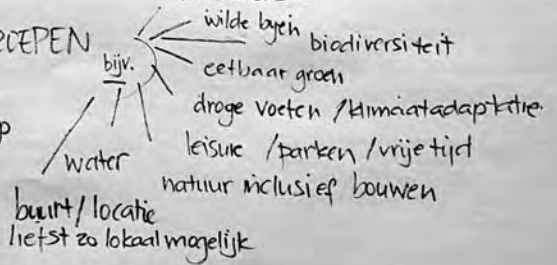 wilde byen
biodiversiteit
bijv.
eetbaar groen
droge voeten / klimaatadaptatie.
leisure / parken / vrije tijd
water
natuur inclusief bouwen
buurt / locatie
liefst zo lokaal mogelijk